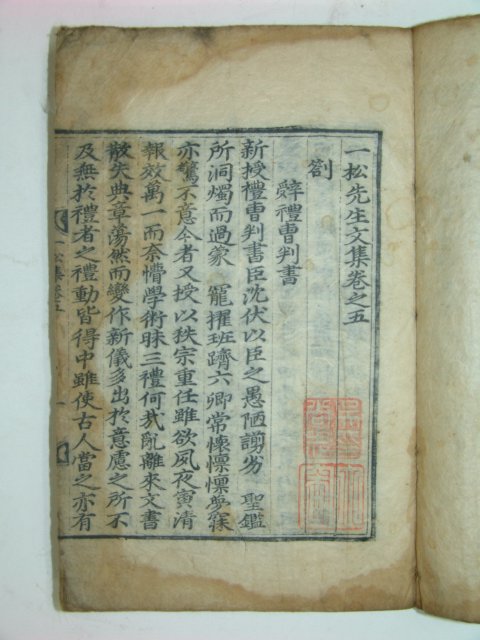 一松先生文集卷之五
劄
辭禮曹判書
新授禮曹判書臣沈伏以臣之愚陋謭劣 聖鑑
所洞燭而過蒙 寵擢班躋六卿常懷懍懍夢寐
亦驚不意今者又授以秩宗重任雖欲夙夜寅清
報效萬一而奈懵學術昧三禮何哉亂離來文書
散失典章蕩然而變作新儀多出於意慮之所不
及無於禮者之禮動皆得中雖使古人當之亦有
一松集卷五